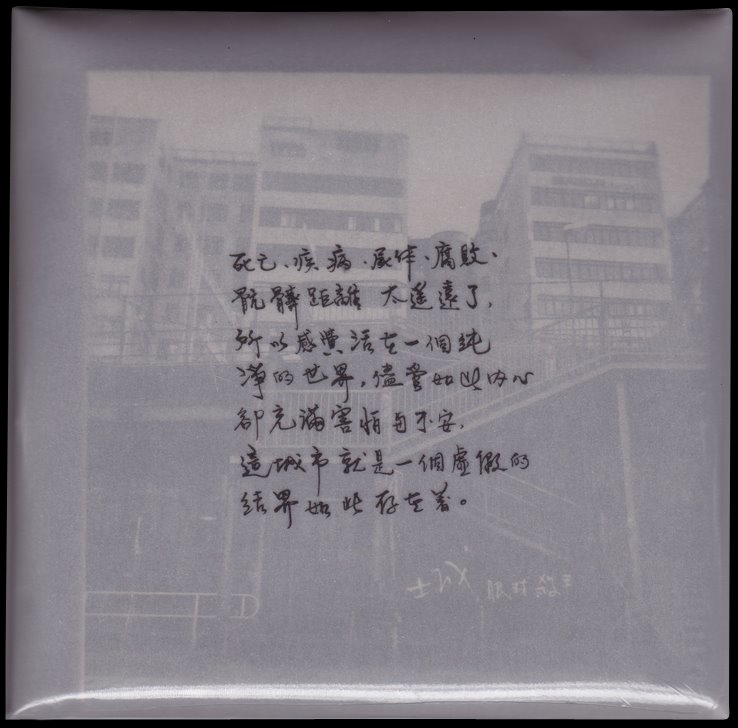 死亡、疾病、屍体、腐敗、
骯髒距離太遙遠了,
所以感覺活在一個純
淨的世界,儘管如此內心
卻充滿害怕与不安,
這城市就是一個虛假的
結界如此存在着。